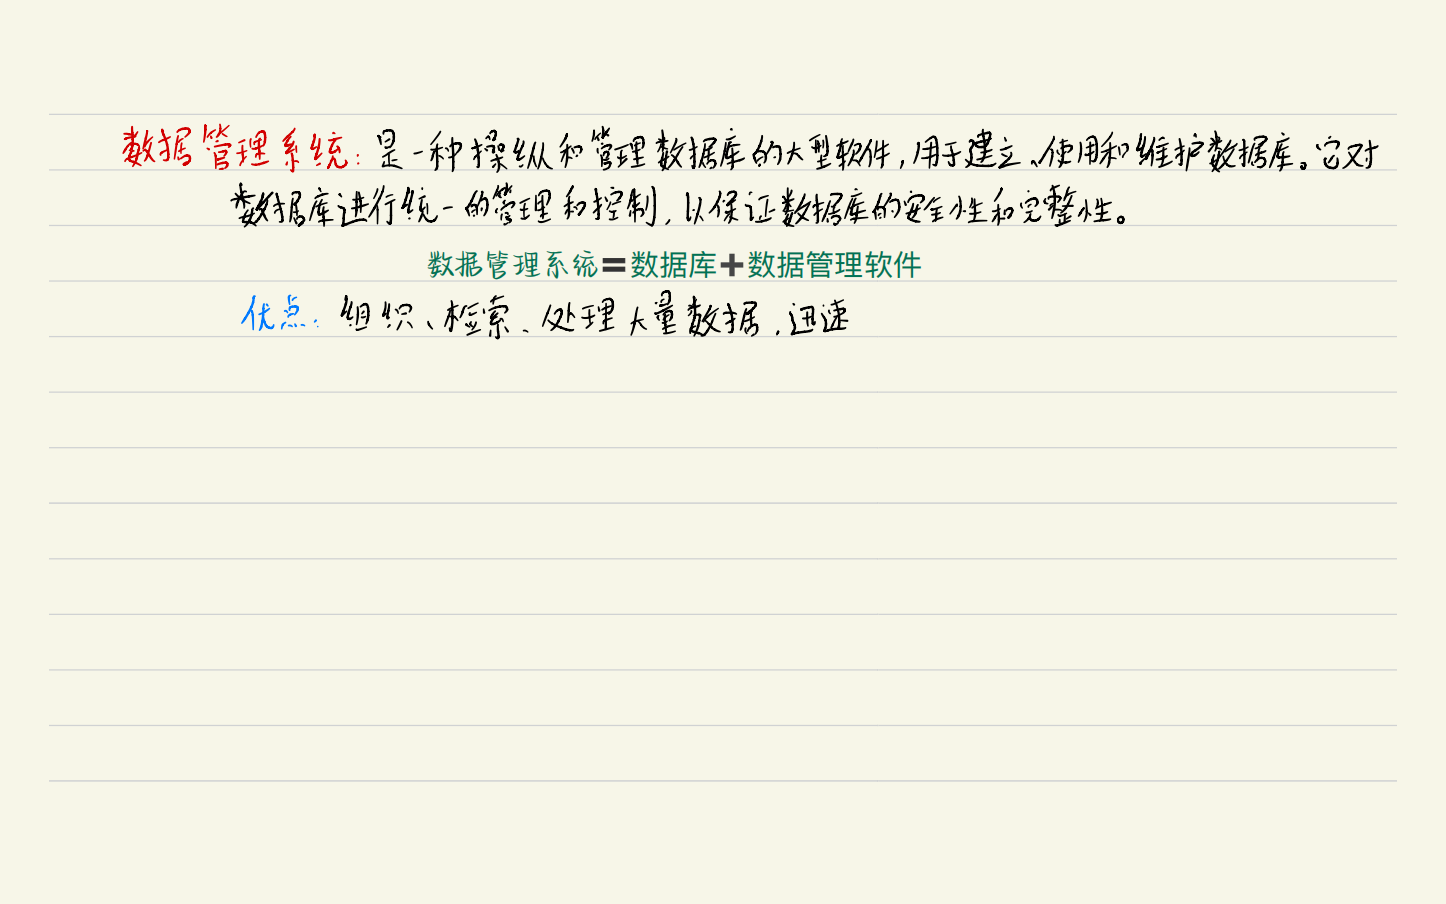 数据管理系统：是一种操纵和管理数据库的大型软件，用于建立、使用和维护数据库。它对
数据库进行统一的管理和控制，以保证数据库的安全性和完整性。
数据管理系统=数据库+数据管理软件
优点：组织、检索、处理大量数据，迅速